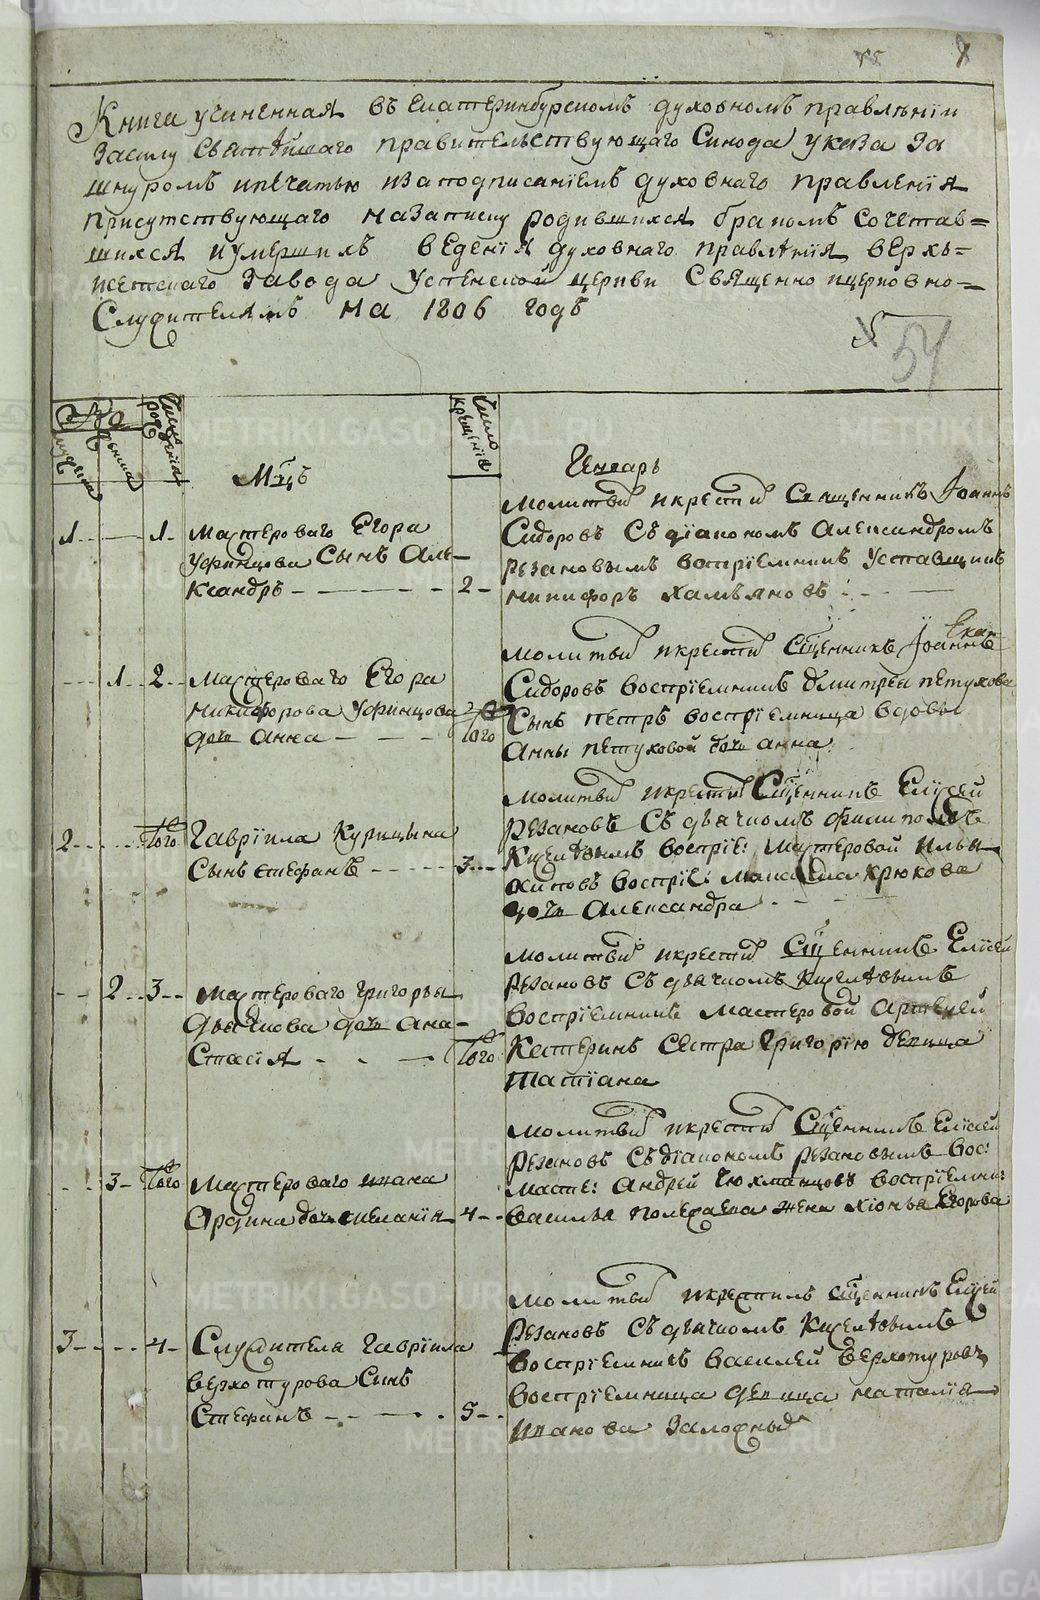 Книга учиненная въ Екатеринбурскомъ духовномъ правлѣнiи
засилу Святѣйшаго правительствующаго Синода указа за
шнуромъ ипечатью изаподписанïемъ духовнаго правленïя
присутствующаго назаписку родившихся бракомъ сочетав=
шихся иумершихъ веденïя духовнаго правлѣнïя верхъ-
исетскаго завода Успенской церкви Священно ицерковно-
Служителямъ на 1806 годъ
54
№
Число рожденïя
Число крещенïя
Мцъ
Генварь
1 - 1 - Мастероваго Егора
Уфинцова сынъ Але-
ксандръ - 2 -
Молитви икрести Священникъ Iоаннъ
Сидоровъ Съ дïакономъ Александромъ
Резановымъ воспрïемникъ Уставщикъ
никифоръ
1 - 2 - Мастероваго Егора
никифорова Уфинцова
дочь Анна - того
Молитви икрести Сщенникъ Iоаннъ
Сидоровъ воспрïемникъ дмитрея петухова
Сынъ петръ воспрïемница вдовы
Анны петуховой дочь анна
2 - того Гаврïила Курицына
Сынъ стефанъ - 3 -
Молитви икрести Сщенникъ Елисей
Резановъ Съ дьячкомъ филипомъ
воспрïе: Мастеровой Илья
воспрïе: Максима крюкова
дочь Александра
2 - 3 - Мастероваго григорья
дьячкова дочь Ана-
стасïя - того
Молитви икрести Сщенникъ Елисей
Резановъ Съ дьячкомъ
воспрïемникъ Мастеровой
Сестра григорïю девица
Татïана
3 - того Мастероваго ивана
дочь меланïя - 4 -
Молитви икрести Сщенникъ Елисей
Резановъ Съ дïакономъ резановымъ вос:
Масте: Андрей воспрïемни:
василья жена хïонья Егорова
3 - 4 - Служителя гаврïила
верхотурова Синъ
Стефанъ - 5 -
Молитви икрестилъ сщенникъ Елисей
Резановъ Съ дьячкомъ
воспрïемникъ василей верхотуровъ
воспрïемница девица наталïя
иванова